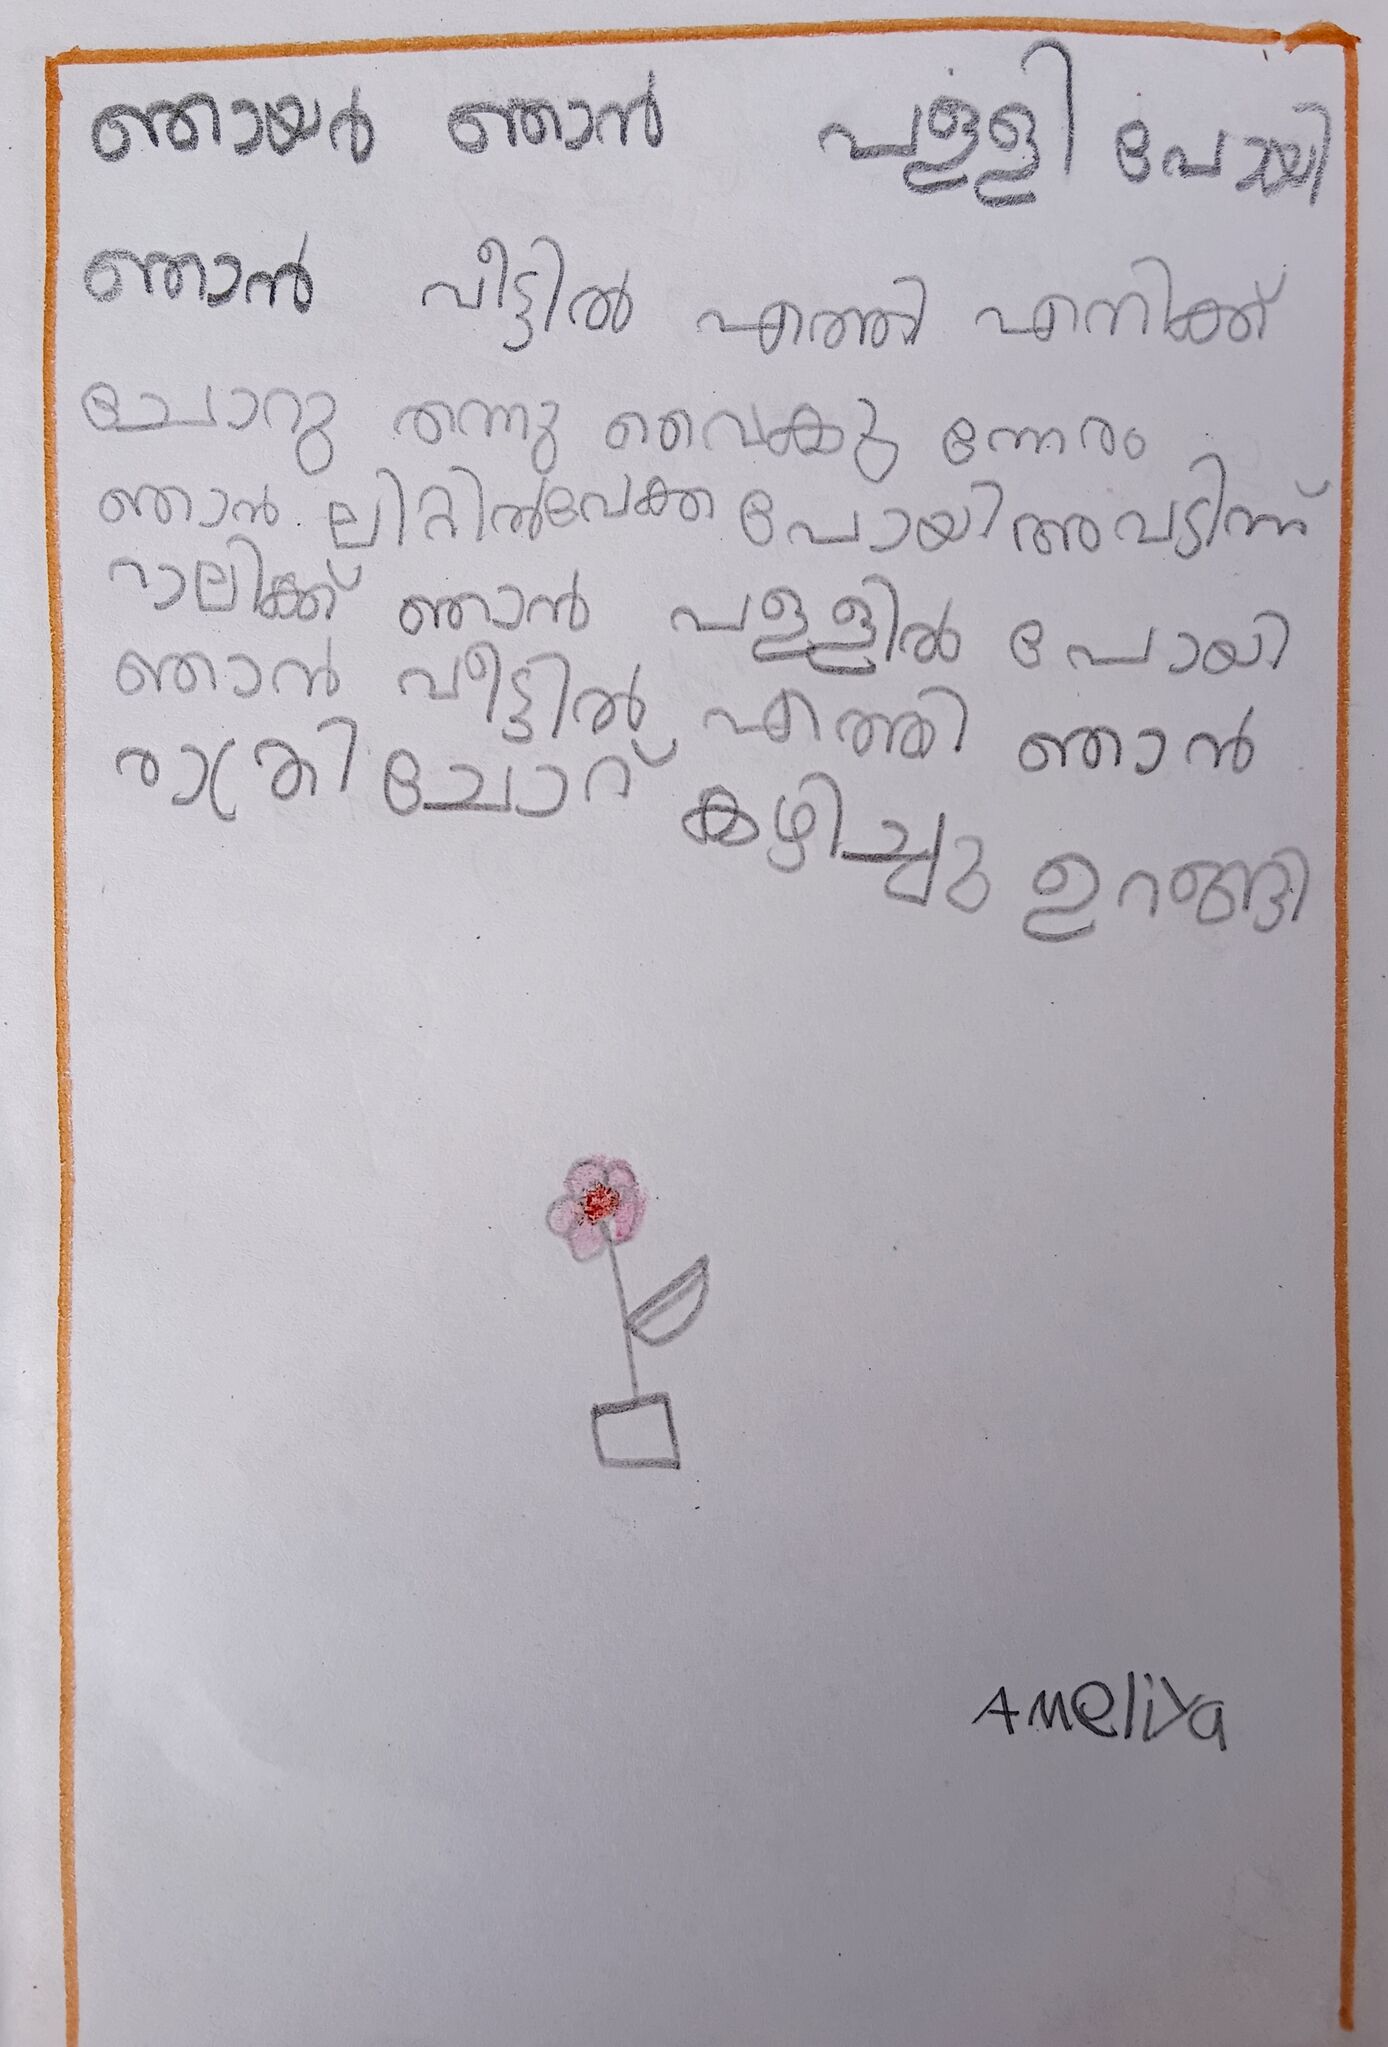 ഞായർ ഞാൻ പള്ളി പോയി
ഞാൻ വീട്ടിൽ എത്തി എനിക്ക്
ചോറു തന്നു വൈകു ന്നേരം
ഞാൻ ലിറ്റിൽവേക്ക പോയി അവടിന്ന്
റാലിക്ക് ഞാൻ പള്ളിൽ പോയി
ഞാൻ വീട്ടിൽ എത്തി ഞാൻ
രാത്രി ചോറ് കഴിച്ചു ഉറങ്ങി
AMeliya